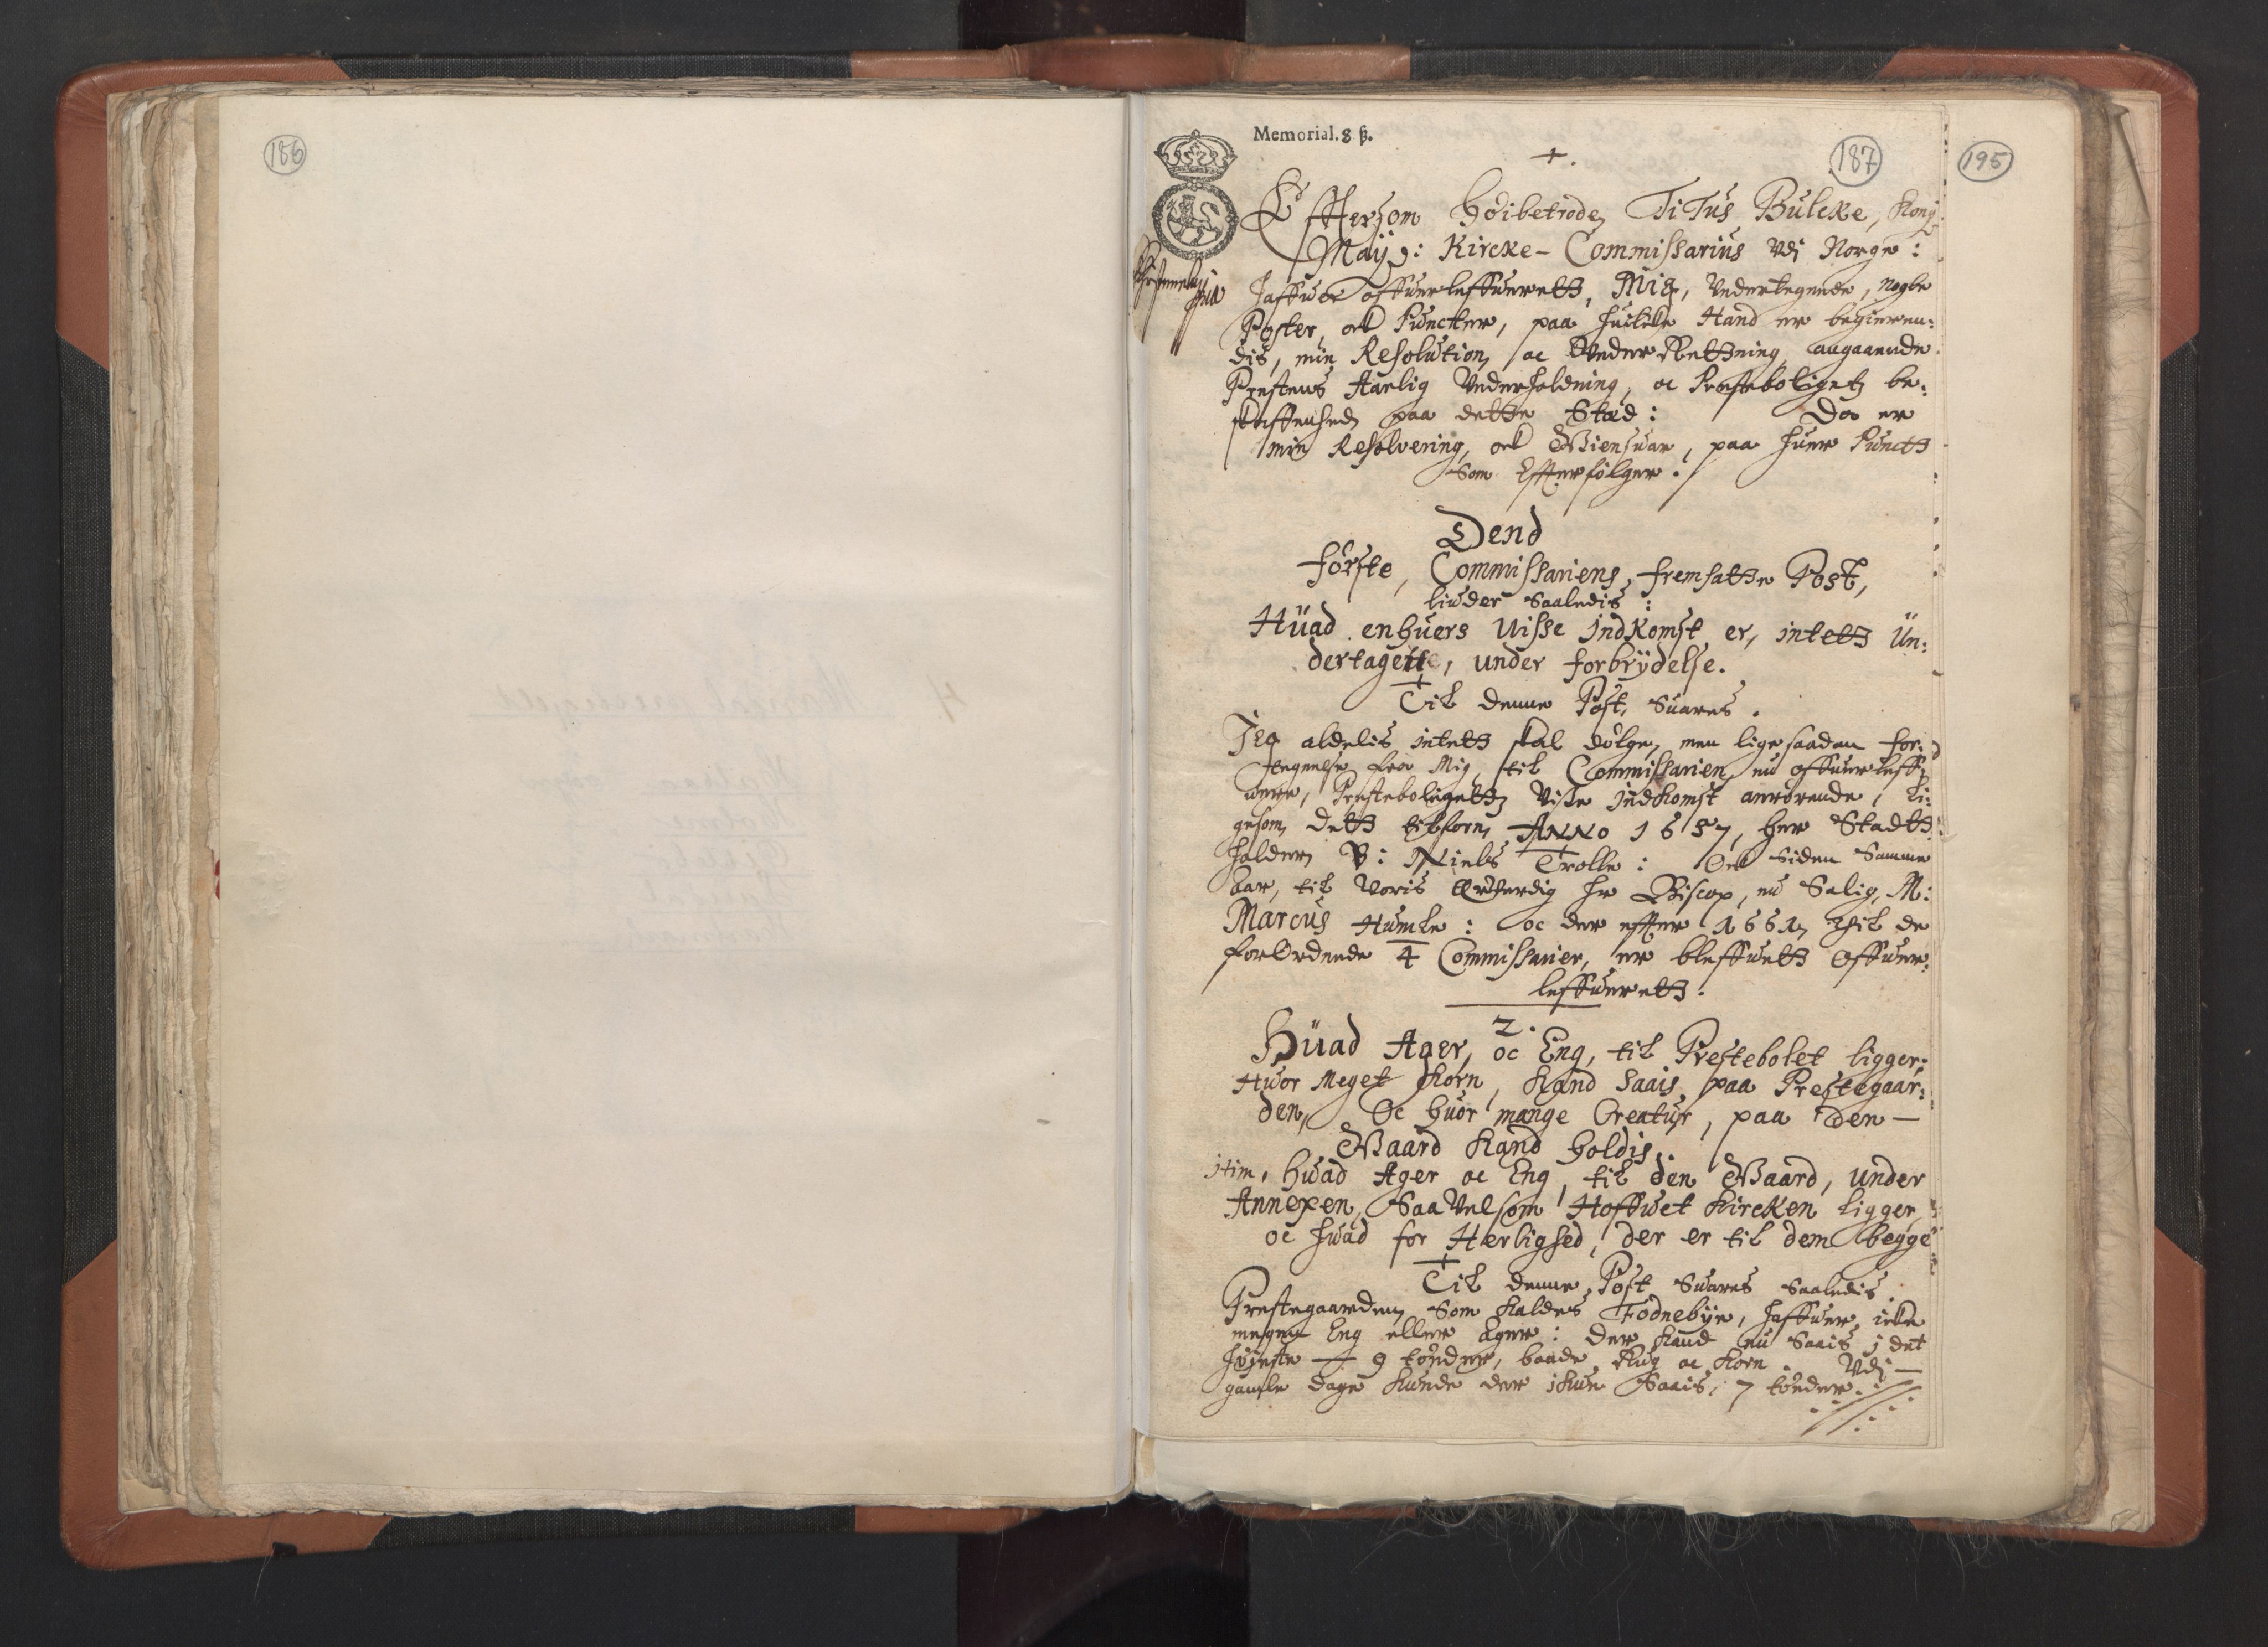 186
Memorial. 8 ß.
+.
187
195
Efftersom Höibetrode Titus Bulcke, Kong
Mayj: Kircke-Commissarius Vdj Norge:
haffuer offuerleffueretß, Mig, Vndertegnede, nogle
Poster, och Puncter, paa huilcke Hand er begieren:
dis, min Resolution, oc VnderRettning, angaaende
Prestens Aarlig Vnderholdning, oc Presteboligetz be:
skaffenhed, paa dette Stæd: Da er
min Resolvering, och Giensuar, paa huer Punctß
Som Effterfölger:
Dend
förste, Commissariens, fremsatte Post,
liuder Saaledis:
Hüad enhuers Uisse Indkomst er, intetß Ün:
dertagette, under forbrÿdelse.
Til denne Post, Suares.
Jeg aldelis intetß skal dölge, men lige saadan for:
tegnelse fra Mig, til Commissarien, nu offuerleff:
uere, Presteboligetß Visse Indkomst anrörende, li:
gesom detß tilforn, Anno 1657, her Stadtß:
holder, V: Niels Trolle: Och Siden Samme
Aar, til Voris Ærverdig Hr Biscop, nu Salig, M:
Marcus Humle: oc der effter 1661, til de
forOrdnede 4 Commissarier, er bleffuetß Offuer:
leffueretß.
2.
Hüad Ager, oc Eng, til Prestebolet ligger:
Huor Meget Korn, Kand Saais, paa Prestegaar:
den, Oc huor mange Creatur, paa den —
Gaard Kand holdis.
Item, huad Ager oc Eng, til den Gaard, under
Annexen, Saa Velsom Hoffuet Kircken ligger
oc huad for Herlighed, der er til dem begge
Til denne Post Suares Saaledis.
Prestegaarden, Som Kaldes Fodnebÿe, haffuer icke
megen Eng eller Ager: der Kand nu Saais i det
höjeste — 9 tönder, baade Rug oc Korn. Vdj —
gamle dage Kunde der ickun Saais, 7 tönder.